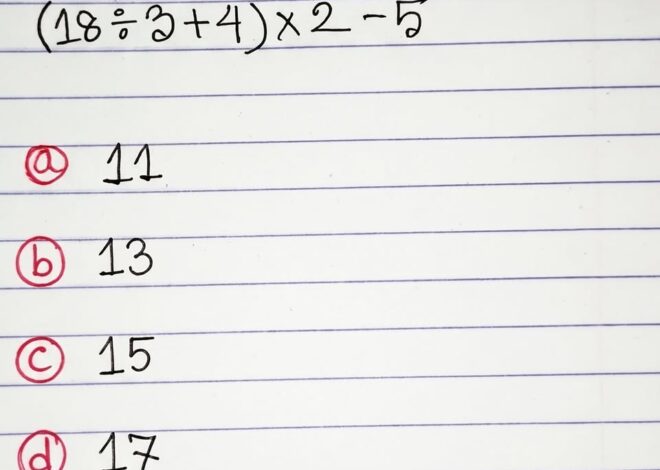 (18÷3+4)×2-5
a 11
b 13
c 15
d 17